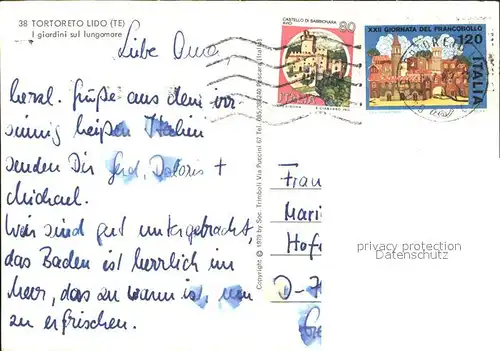 38 TORTORETO LIDO (TE)
I giardini sul lungomare
CASTELLO DI SABBIONARA
AVIO
80
ITALIA
XXII GIORNATA DEL FRANCOBOLLO
120
ITALIA
Liebe Oma,
herzl. Grüße aus dem irr-
sinnig heißen Italien
senden Dir Gerd, Doloris +
Michael.
Wir sind gut untergebracht,
das Baden ist herrlich im
Meer, das zu warm ist, um
zu erfrischen.
Copyright © 1979 by Soc. Trimboli Via Puccini 67 Tel. 085/ Pescara (Italia)
Frau
Mari
Hof
D-
privacy protection
Datenschutz